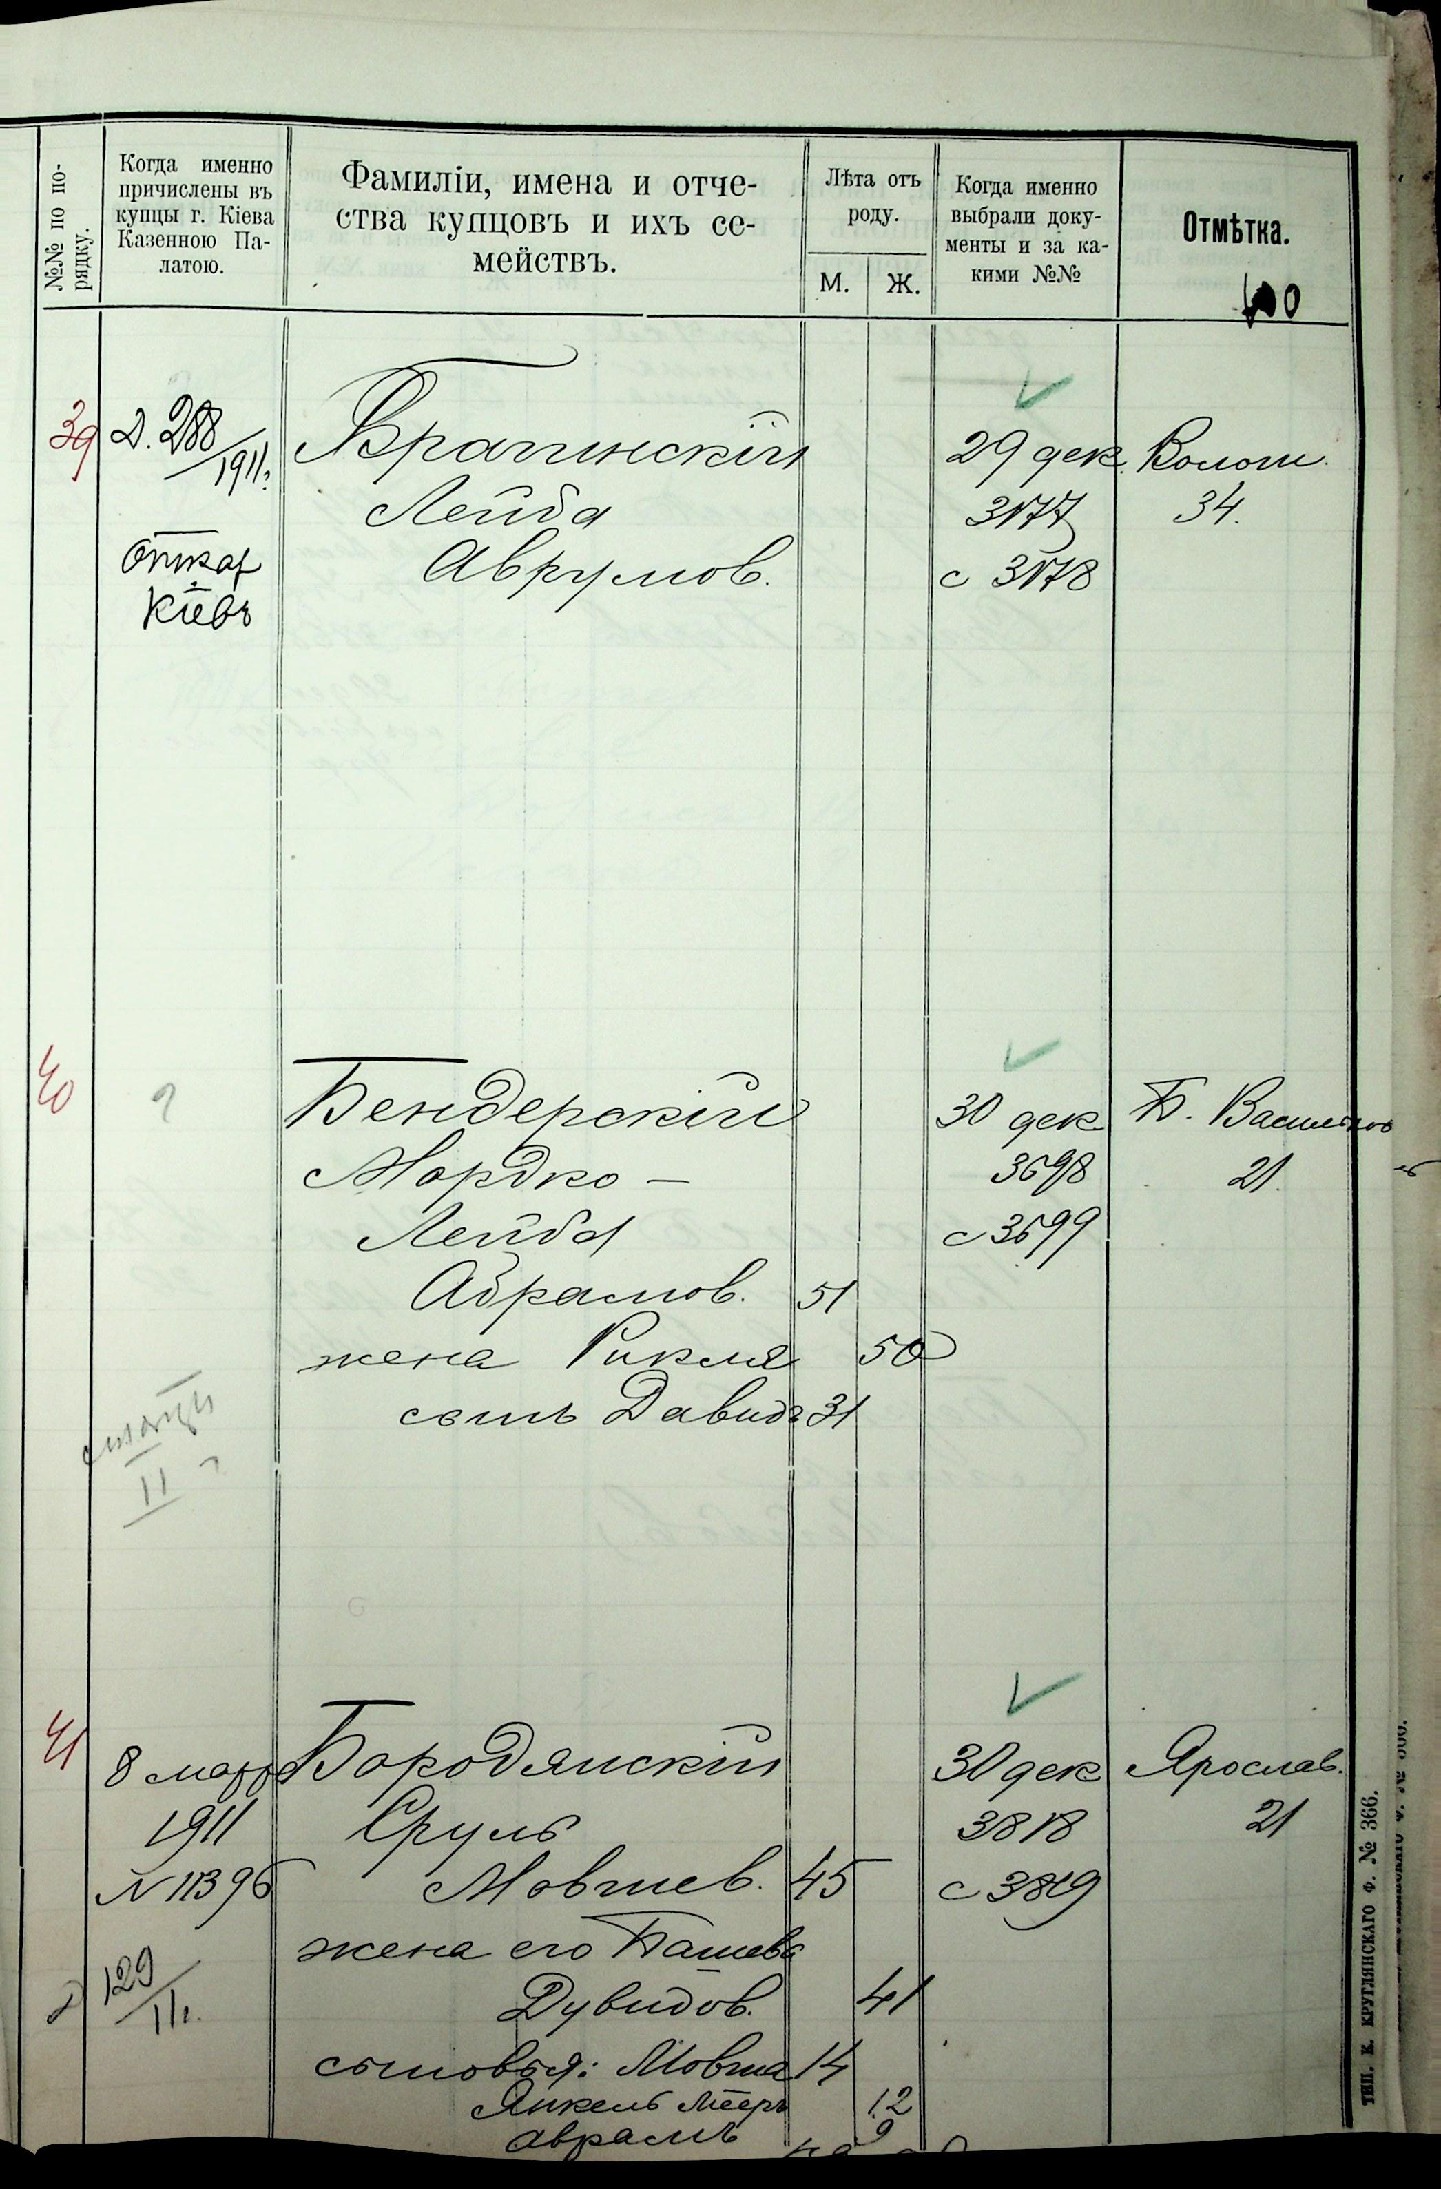 №№ по по-
рядку.
Когда именно
причислены въ
купцы г. Кіева
Казенною Па-
латою.
Фамиліи, имена и отче-
ства купцовъ и ихъ се-
мействъ.
Лѣта отъ
роду.
М.
Ж.
Когда именно
выбрали доку-
менты и за ка-
кими №№
Отмѣтка.
39
Д. 288
/1911г.
Кіевъ
Брагинскій
Лейба
Аврумов.
29 дек.
3177
с 3178
Волош.
34.
40
?
II ?
Бендерскій
Мордко —
Лейба
Абрамов. 51
жена Рикля 50
сынъ Давидъ 31
30 дек
3698
с 3699
Б. Васильков
21.
41
8 марта
1911
N 11396
Д 129
/11г.
Бородянскій
Сруль
Мовшев. 45
жена его Башева
Дувидов. 41
сыновья: Мовша 14
Янкель Мееръ 12
Аврамъ 9
30 дек
3818
с 3819
Ярослав.
21
ТИП. К. КРУГЛЯНСКАГО Ф. № 366.